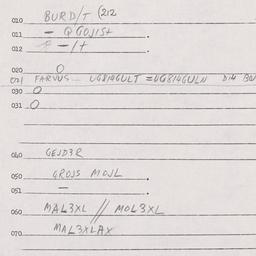 010 BURD/T (212
011 — QGOJIS+ .
012 — /+ .
020 O
021 FARVUS — UG814GULT = UG814GULN
030 O
031 O
040 GEJD3R
050 GROJS MOJL
051 — .
060 MAL3XL // MOL3XL
070 MAL3XLAX